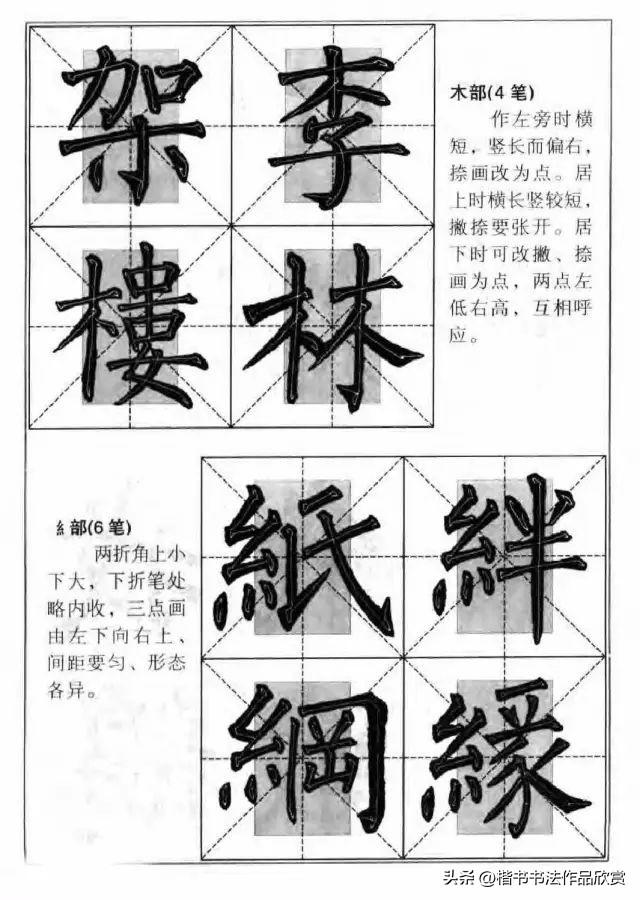 架李
木部(4笔)
作左旁时横
短，竖长而偏右，
捺画改为点。居
上时横长竖较短，
撇捺要张开。居
下时可改撇、捺
画为点，两点左
低右高，互相呼
应。
樓林
紙絆
糹部(6笔)
两折角上小
下大，下折笔处
略内收，三点画
由左下向右上、
间距要匀、形态
各异。
綱緣
头条 @楷书书法作品欣赏